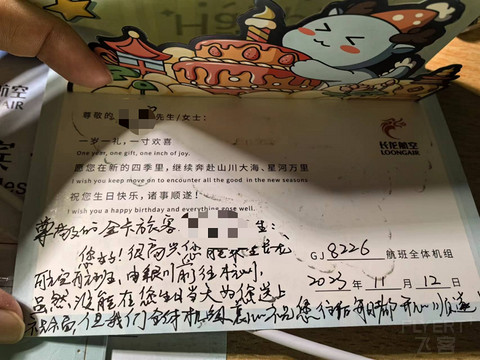 尊敬的 先生/女士:
一岁一礼,一寸欢喜
One year, one gift, one inch of joy.
愿您在新的四季里,继续奔赴山川大海、星河万里
I wish you keep move on to encounter all the good in the new seasons
祝您生日快乐,诸事顺遂!
I wish you a happy birthday and everything goes well.
长龙航空
LOONGAIR
尊敬的金卡旅客 先生:
您好!很高兴您 乘坐长龙
航空航班,由银川前往杭州,
虽然没能在您生日当天为您送上
祝福,但我们全体机组 祝您往后每日都开心顺遂
GJ 8226 航班全体机组
2023 年 11 月 12 日
航空
AIR
FLYERT
飞客